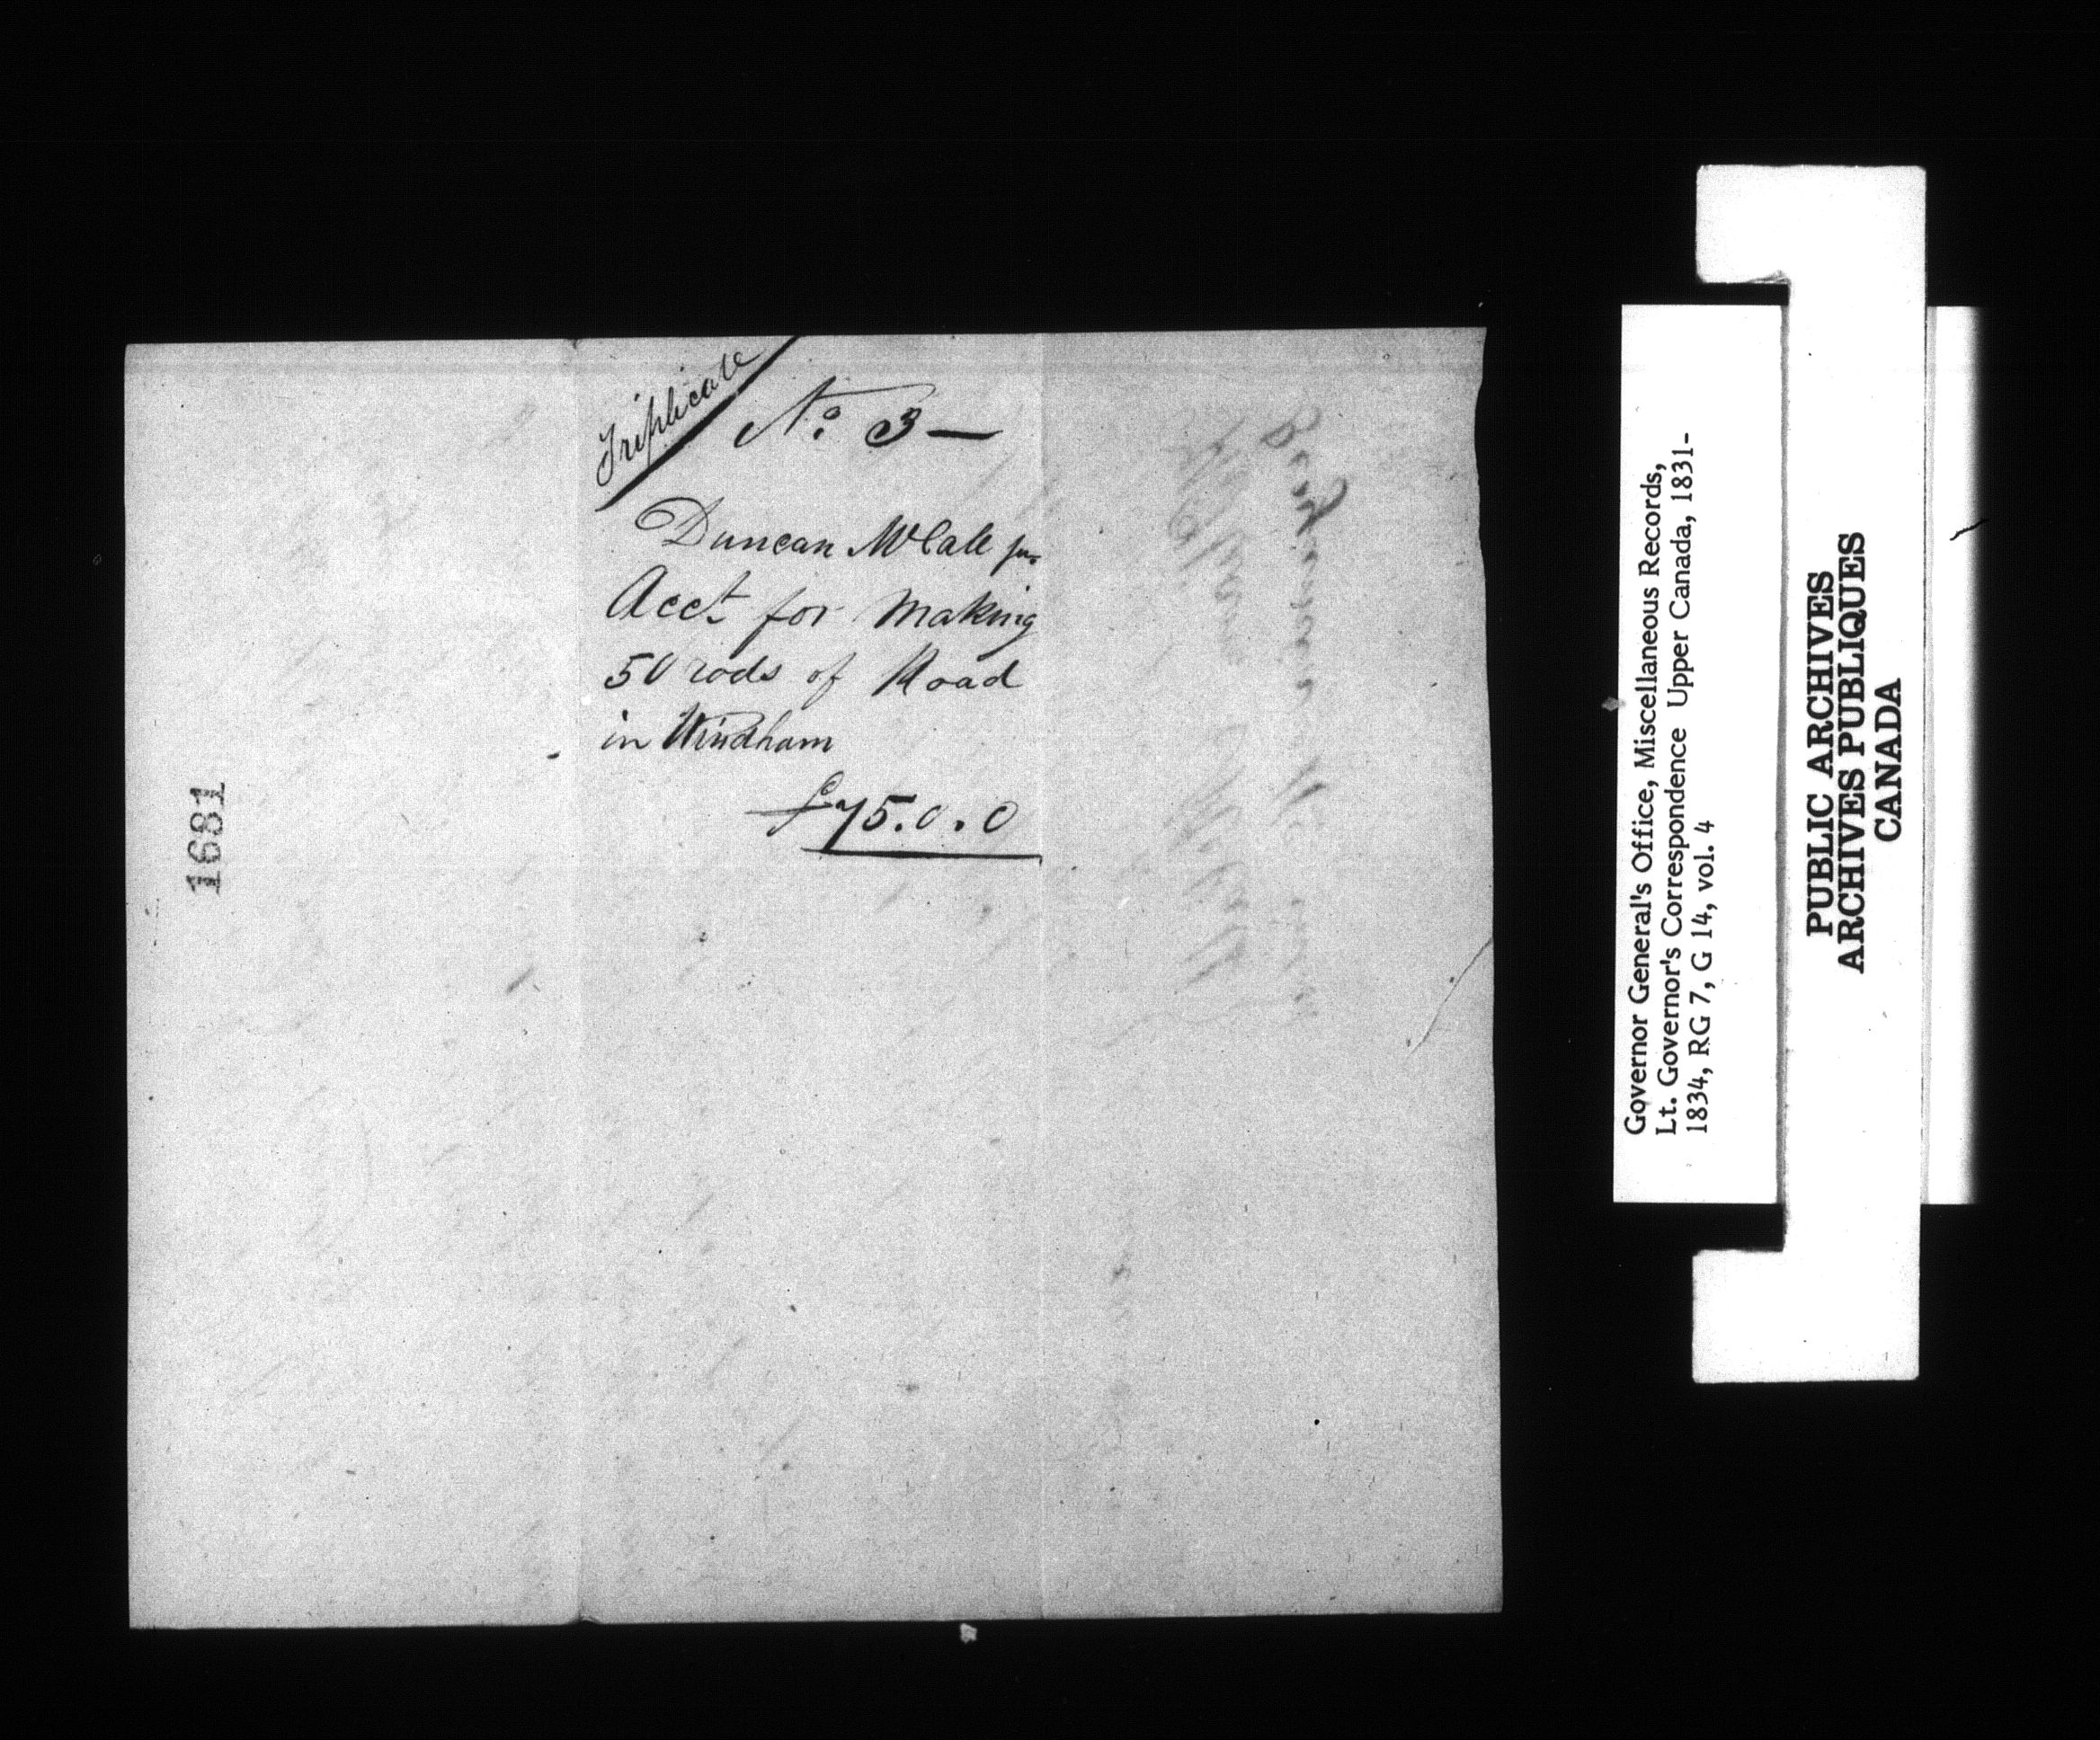 Triplicate
No. 3 —
Duncan McCall jur.
Acct. for making
50 rods of Road
in Windham
£75.0.0
1681
Governor General's Office, Miscellaneous Records,
Lt. Governor's Correspondence Upper Canada, 1831-
1834, RG 7, G 14, vol. 4
PUBLIC ARCHIVES
ARCHIVES PUBLIQUES
CANADA